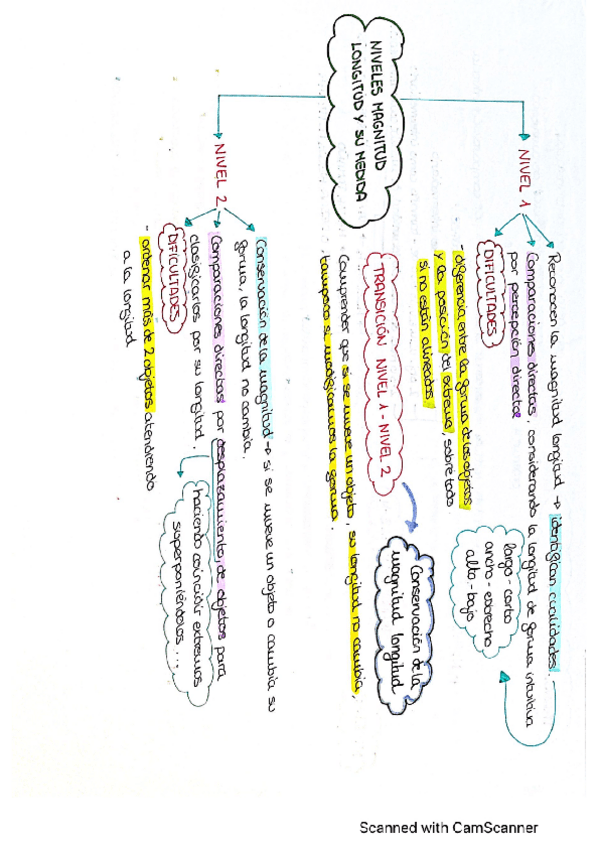 NIVELES MAGNITUD
LONGITUD Y SU MEDIDA
NIVEL 1
Reconocen la magnitud longitud → identifican cualidades.
largo - corto
ancho - estrecho
alto - bajo
Comparaciones directas, considerando la longitud de forma intuitiva
por percepción directa
DIFICULTADES
- diferencia entre la forma de los objetos
y la posición del extremo, sobre todo
si no están alineados
TRANSICIÓN NIVEL 1 - NIVEL 2
Conservación de la
magnitud longitud
Comprender que si se mueve un objeto, su longitud no cambia,
tampoco si modificamos la forma.
NIVEL 2
Conservación de la magnitud → si se mueve un objeto o cambia su
forma, la longitud no cambia.
Comparaciones directas por desplazamiento de objetos para
clasificarlos por su longitud.
haciendo coincidir extremos
superponiéndolos ...
DIFICULTADES
- ordenar más de 2 objetos atendiendo
a la longitud
Scanned with CamScanner